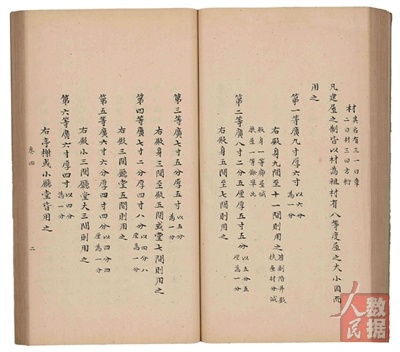 材其名有三一曰章
二曰材三曰方桁
凡建屋之制皆以材為祖材有八等度屋之大小因而
用之
第一等廣九寸厚六寸以六分
為一分
右殿身九間至十一間則用之若副階并殿
挾屋材分減
殿身一等廊屋減
挾屋一等餘准此
第二等廣八寸二分五厘厚五寸五分以五分五
厘為一分
右殿身五間至七間則用之
第三等廣七寸五分厚五寸以五分
為一分
右殿身三間至殿五間或堂七間則用之
第四等廣七寸二分厚四寸八分以四分八
厘為一分
右殿三間廳堂五間則用之
第五等廣六寸六分厚四寸四分以四分四
厘為一分
右殿小三間廳堂大三間則用之
第六等廣六寸厚四寸以四分
為一分
右亭榭或小廳堂皆用之
卷四
二
人民
数据